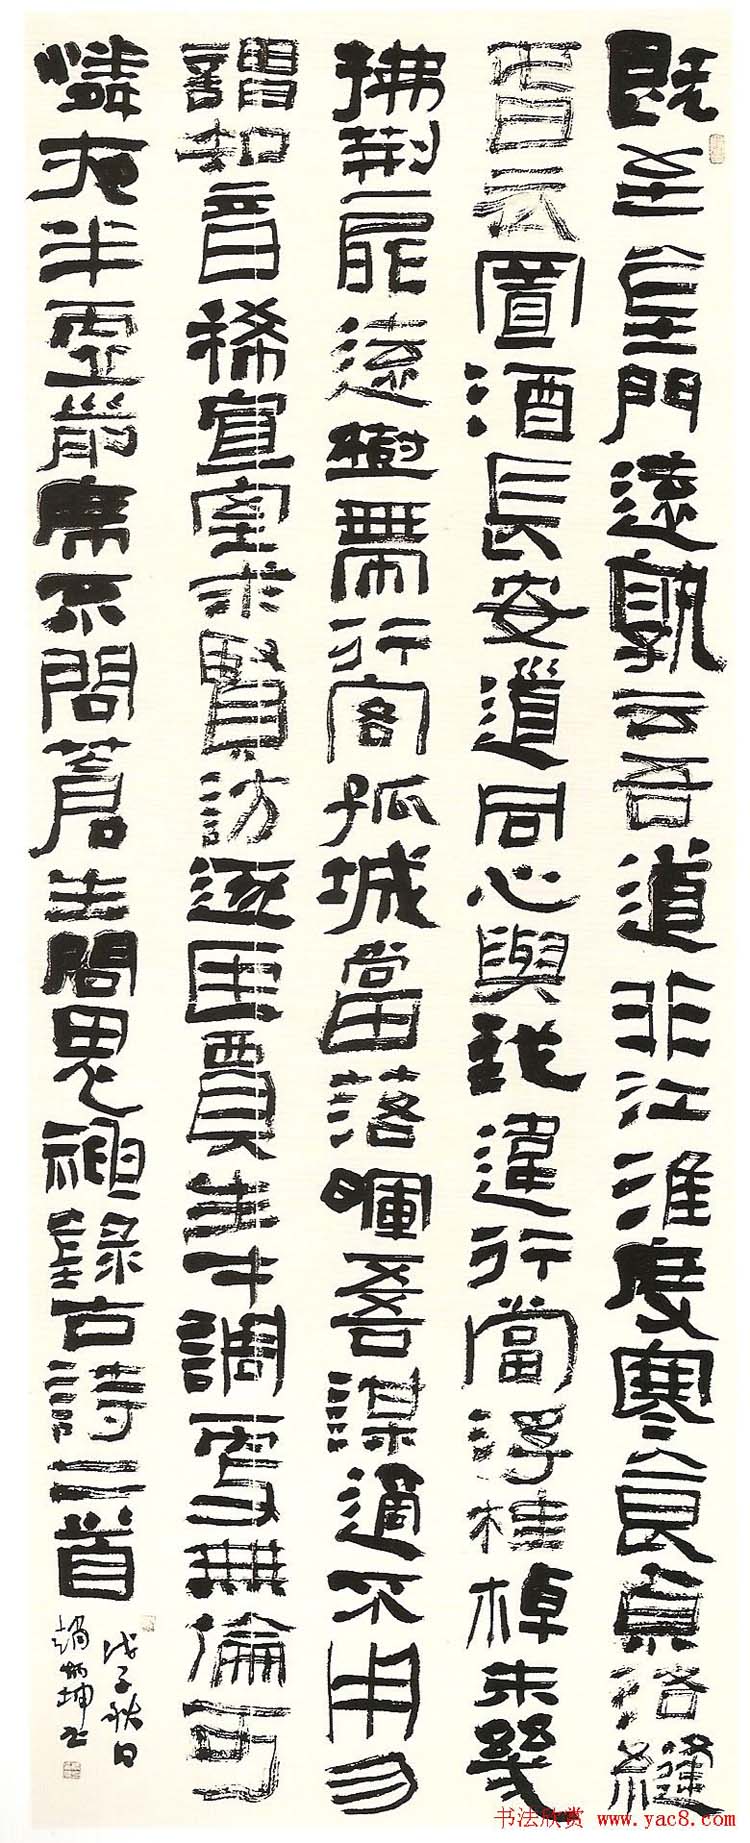 既至金門遠孰云吾道非江淮度寒食京洛縫
春衣置酒長安道同心與我違行當浮桂棹未幾
拂荊扉遠樹帶行客孤城當落暉吾謀適不用勿
謂知音稀宣室求賢訪逐臣賈生才調更無倫可
憐夜半虛前席不問蒼生問鬼神錄古詩二首
戊子秋日
趙炳坤書
书法欣赏 www.yac8.com